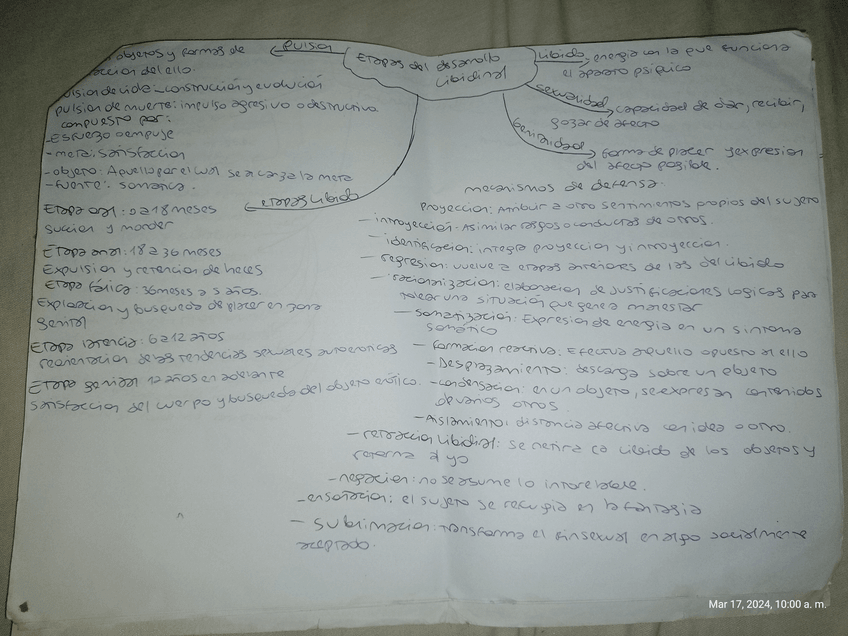 Etapas del desarrollo
libidinal
pulsion
objetos y formas de
accion del ello
pulsion de vida construccion y evolucion
pulsion de muerte: impulso agresivo o destructivo
compuesto por:
-Esfuerzo o empuje
-meta: satisfaccion
-objeto: Aquello por el cual se alcanza la meta
-fuente: somatica.
libido, energia con la que funciona
el aparato psiquico
sexualidad capacidad de dar, recibir,
gozar de afecto
Genitalidad forma de placer y expresion
del afecto posible.
etapas libido
Etapa oral: 0 a 18 meses
succion y morder
Etapa anal: 18 a 36 meses
Expulsion y retencion de heces
Etapa fálica: 36 meses a 5 años.
Exploracion y busqueda de placer en zona
genital
Etapa latencia: 6 a 12 años
reorientacion de las tendencias sexuales autoeroticas
Etapa genital 12 años en adelante
satisfaccion del cuerpo y busqueda del objeto erótico.
mecanismos de defensa.
proyeccion: Atribuir a otro sentimientos propios del sujeto
- introyeccion: Asimilar rasgos o conductas de otros.
- identificacion: integra proyeccion y introyeccion.
- regresion: vuelve a etapas anteriores de las del libido
- racionalizacion: elaboracion de justificaciones logicas para
una situacion que genera malestar
- somatizacion: Expresion de energia en un sintoma
somático
- formacion reactiva: Efectua aquello opuesto al ello
- Desplazamiento: descarga sobre un objeto
- condensacion: en un objeto, se expresan contenidos
de varios otros
- Aislamiento: distancia afectiva con idea o otro.
- retraccion libidinal: se retira la libido de los objetos y
retorna al yo
- negacion: no se asume lo intolerable.
- ensoñacion: el sujeto se refugia en la fantasia
- sublimacion: transforma el fin sexual en algo socialmente
aceptado.
Mar 17, 2024, 10:00 a. m.